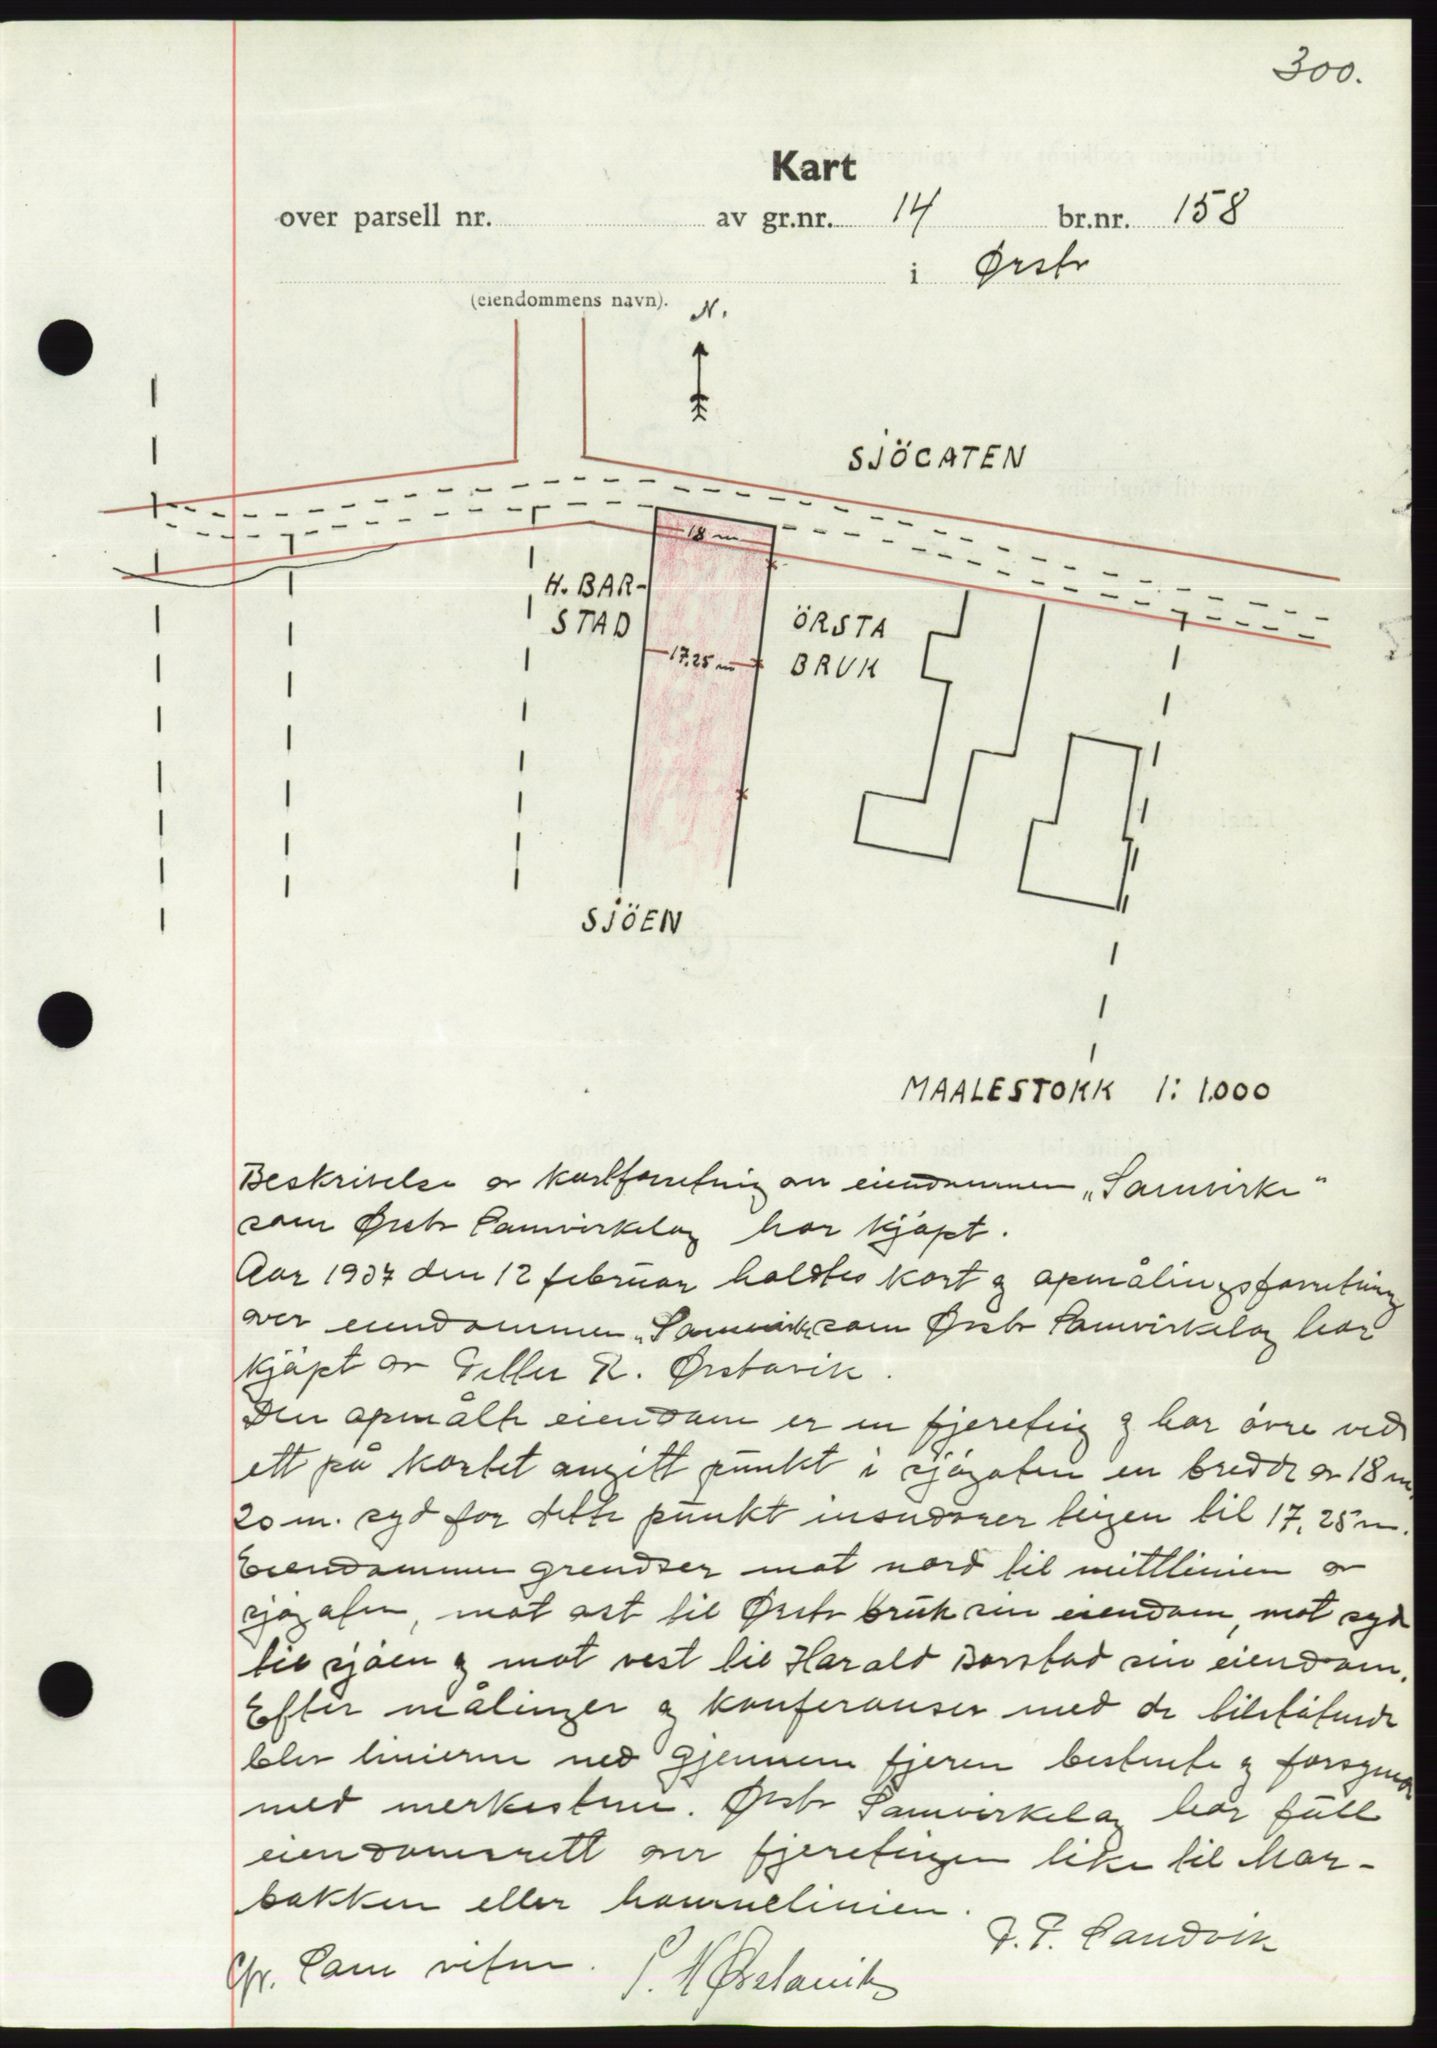 300.
Kart
over parsell nr. av gr.nr. 14 br.nr. 158
i Ørsta
(eiendommens navn).
N.
SJÖGATEN
18 m
H. BAR-
STAD
ÖRSTA
17.25 m
BRUK
SJÖEN
MAALESTOKK 1: 1.000
Beskrivelse av kartforretning over eiendommen „Samvirke“
som Ørsta Samvirkelag har kjøpt.
Aar 1937 den 12 februar holdtes kart og opmålingsforretning
over eiendommen „Samvirke som Ørsta Samvirkelag har
kjøpt av R. Ørstavik.
Den opmålte eiendom er en fjereteig og har øvre ved
ett på kartet angitt punkt i sjøgaten en bredde av 18 m.
20 m. syd for dette punkt insnevrer teigen til 17,25 m.
Eiendommen grendser mot nord til mittlinien av
sjøgaten, mot øst til Ørsta bruk sin eiendom, mot syd
til sjøen og mot vest til Harald Barstad sin eiendom.
Efter målinger og konferanser med de tilstøtende
blev linierne ned gjennem fjeren bestemte og forsynede
med merkestene. Ørsta Samvirkelag har full
eiendomsrett over fjereteigen like til Mar-
bakken eller havnelinien.
J. P. Sandvik
Som vitne. P. N Ørstavik